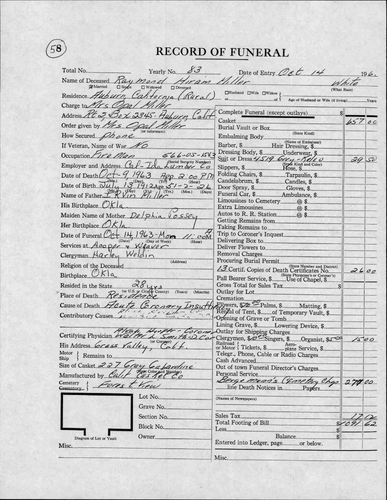 58
RECORD OF FUNERAL
Total No. Yearly No. 83 Date of Entry Oct 14 196
Name of Deceased Raymond Hiram Miller White
Married Single Widowed Divorced Husband Wife Widow (What Race)
Residence Auburn California (Rural) or Age of Husband or Wife (if living) Years
Charge to Mrs Opal Miller
Address Rt 2 Box 2345 Auburn Calif
Order given by Mrs Opal Miller
How Secured Phone
If Veteran, Name of War No
Occupation
Employer and Address Cal-Ida Lumber Co
Date of Death Oct 9, 1963 8:00 P.M.
Date of Birth July 13 1912 Age 51-2-26
Name of Father Irvin Miller
His Birthplace Okla
Maiden Name of Mother Delphia Possey
Her Birthplace Okla
Date of Funeral Oct 14, 1963 Mon 11:00 M
Services at Hooper & Weaver
Clergyman Harley Weldin
Religion of the Deceased
Birthplace Okla
Resided in the State 28 yrs
Place of Death Residence
Cause of Death Acute Coronary
Contributory Causes
Certifying Physician
His Address Grass Valley, Calif.
Motor Ship Remains to
Size of Casket 227 Grey Gabardine
Manufactured by Calif Casket Co
Cemetery Crematory
Diagram of Lot or Vault
Lot No.
Grave No.
Section No.
Block No.
Owner
Misc.
Complete Funeral (except outlays) $
Casket 657 00
Burial Vault or Box
(State Kind)
Embalming Body
(State if Embalmed)
Barber, $ Hair Dressing, $
Dressing Body, $ Underwear, $
Suit or Dress
(State Kind and Color)
Slippers, $ Hose, $
Folding Chairs, $ Tarpaulin, $
Candelabrum, $ Candles, $
Door Spray, $ Gloves, $
Funeral Car, $ Ambulance, $
Limousines to Cemetery @ $
Extra Limousines @ $
Autos to R. R. Station @ $
Getting Remains from
Taking Remains to
Trip to Coroner's Inquest
Delivering Box to
Deliver Flowers to
Removal Charges
Procuring Burial Permit
13 Certif. Copies of Death Certificates No. 26 00
Pall Bearer Service, $ Use of Chapel, $
Gross Total for Sales Tax $
Outlay for Lot
Cremation
Flowers, $ Palms, $ Matting, $
Rental of Tent, $ of Temporary Vault, $
Opening of Grave or Tomb
Lining Grave, $ Lowering Device, $
Outlay for Shipping Charges
Clergymen, $ Singers, $ Organist, $5.00 15 00
Railroad or Motor Tickets, $ Aeroplane Service, $
Telegr., Phone, Cable or Radio Charges
Cash Advanced
Out of town Funeral Director Charges
Personal Service
line Death Notices in Papers
(Names of Newspapers)
Sales Tax $
Total Footing of Bill $
Less
Balance $
Entered into Ledger, page or below.
Misc.